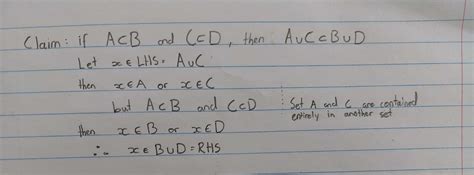 Claim: if A⊂B and C⊂D, then A∪C⊂B∪D
Let x ∈ LHS = A∪C
then x∈A or x∈C
but A⊂B and C⊂D : Set A and C are contained
entirely in another set
then x∈B or x∈D
∴ x∈ B∪D = RHS